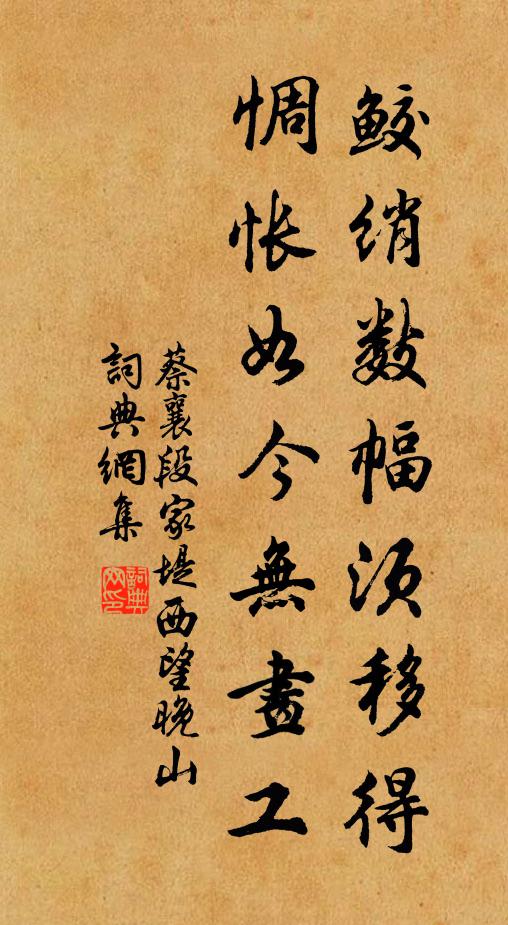 鲛绡数幅须移得
惆怅如今無畫工
蔡襄段家堤西望晚山
詞典網集
詞典网印